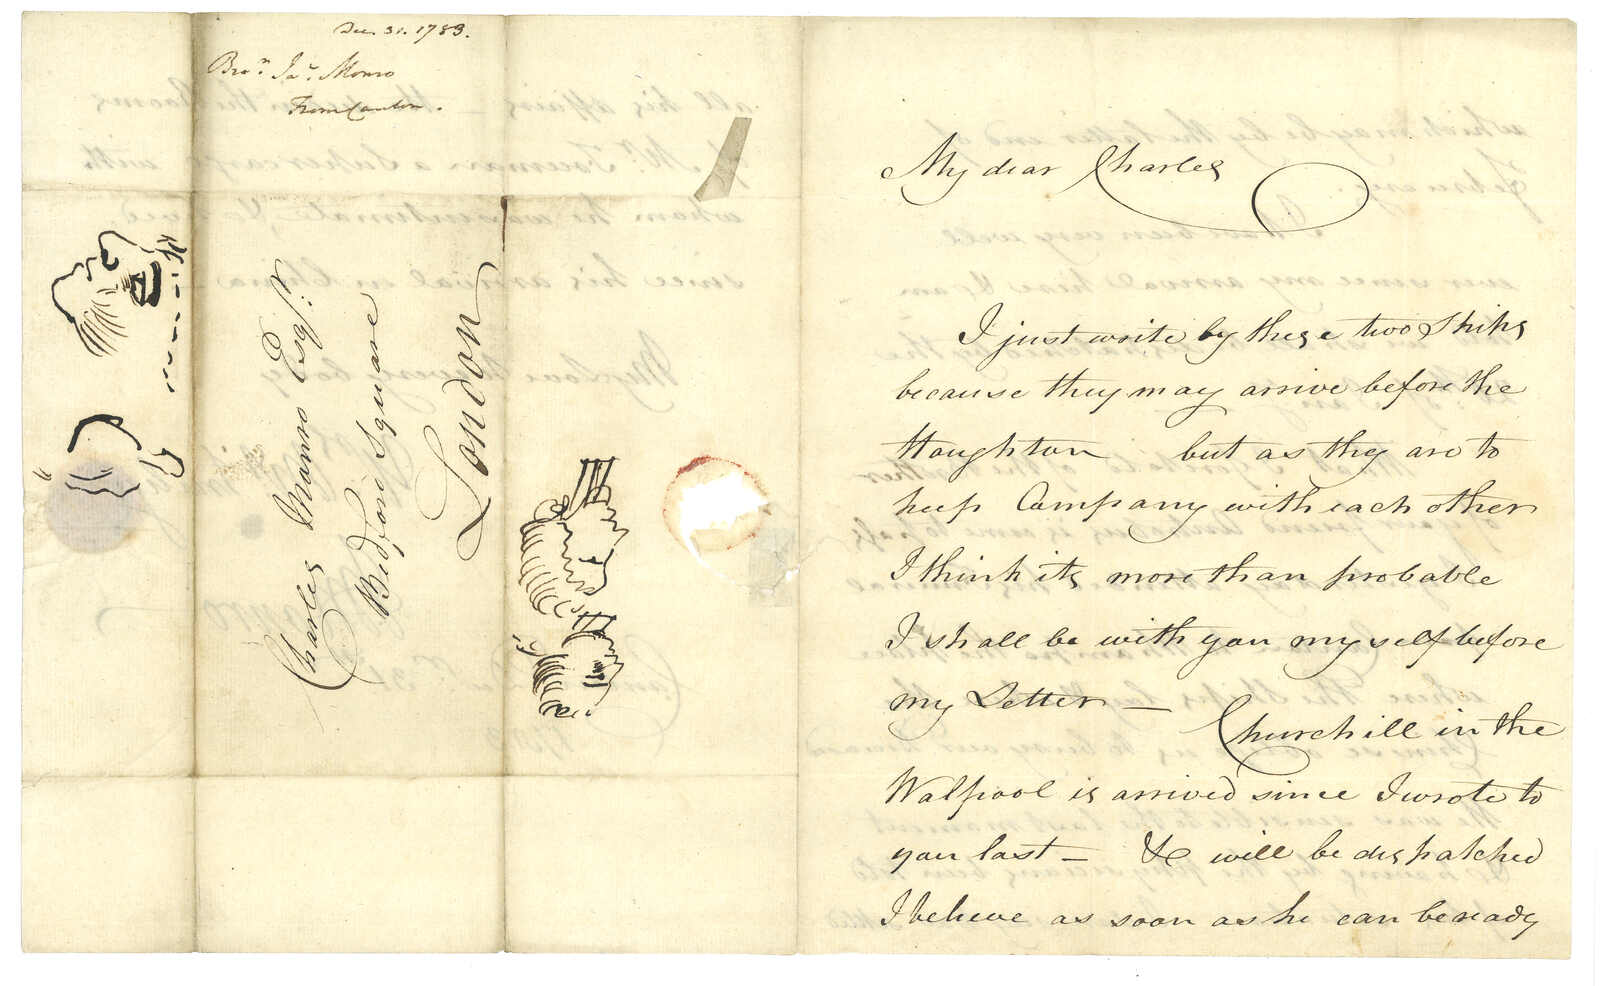 Dec. 31. 1783.
Bro.r Ja.s Monro
From Canton.
Charles Monro Esqr.
Bedford Square
London
My dear Charles
I just write by these two Ships
because they may arrive before the
Houghton but as they are to
keep Company with each other
I think its more than probable
I shall be with you myself before
my Letter — Churchill in the
Walpool is arrived since I wrote to
you last — & will be dispatched
I believe as soon as he can be ready